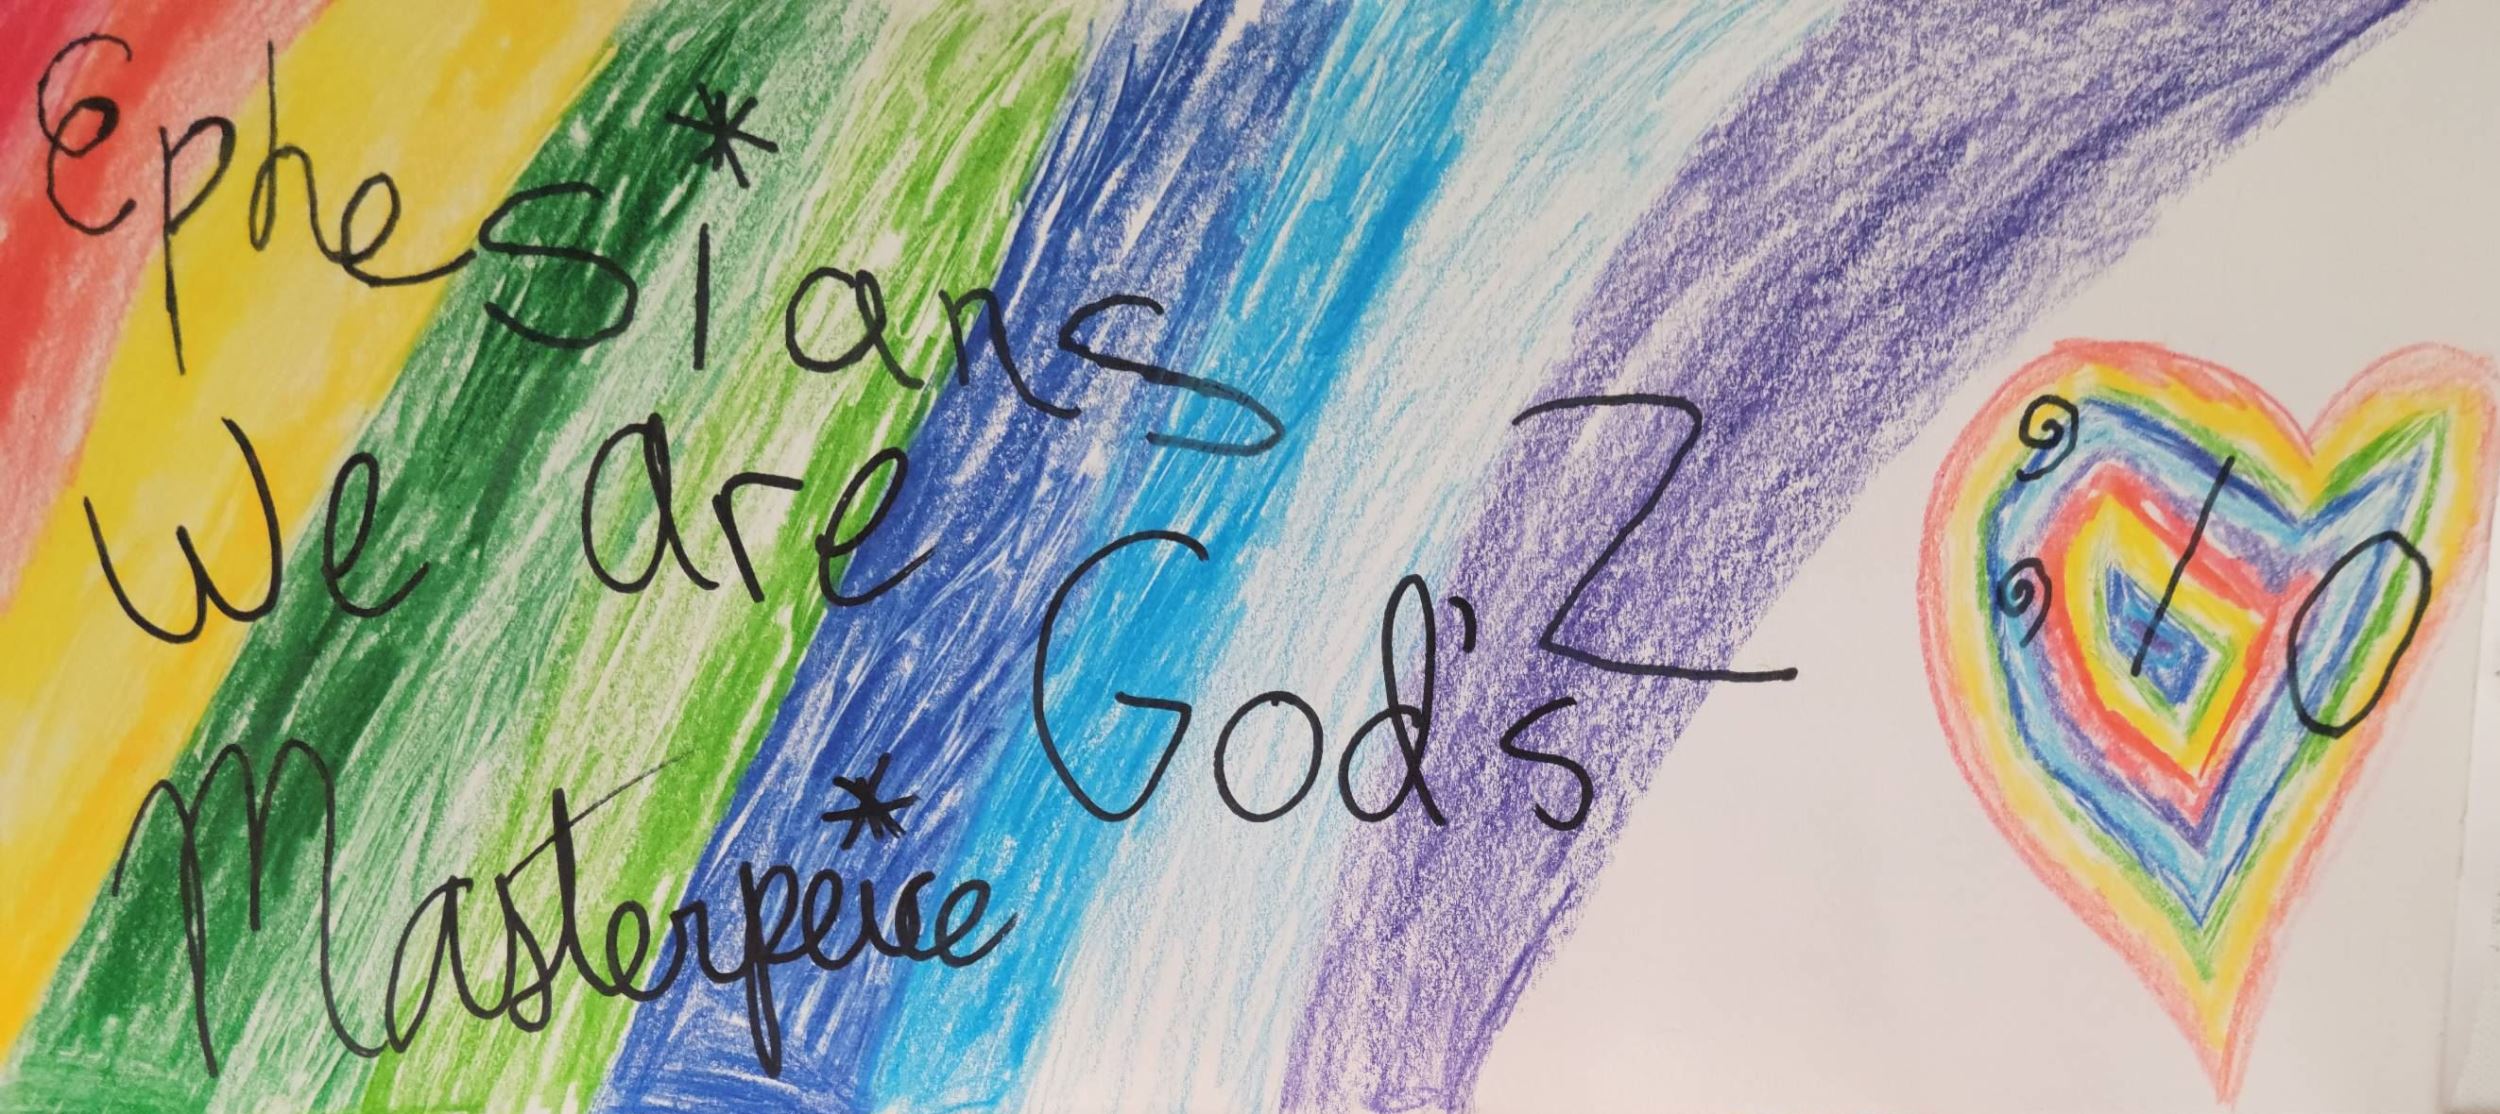 Ephesians 2:10
We are God's
Masterpeice